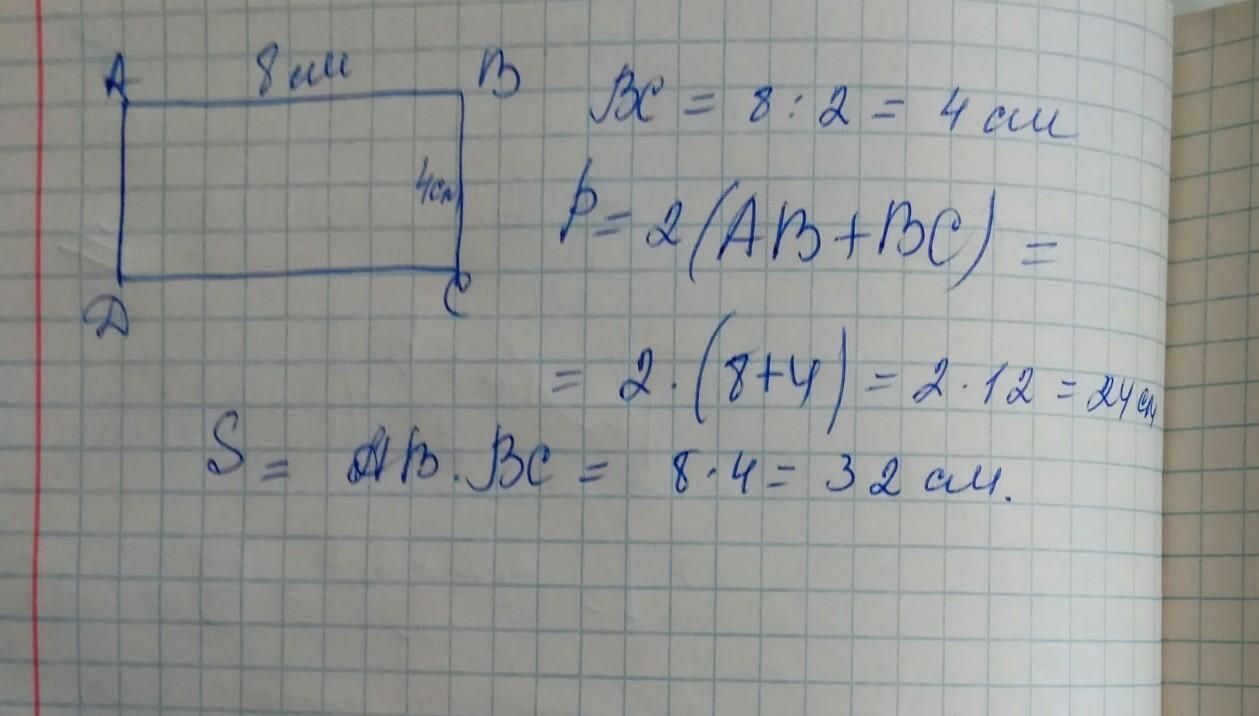 A 8 см B
BC = 8 : 2 = 4 см
4см
P = 2(AB+BC) =
D C
= 2·(8+4) = 2·12 = 24см
S = AB·BC = 8·4 = 32 см.